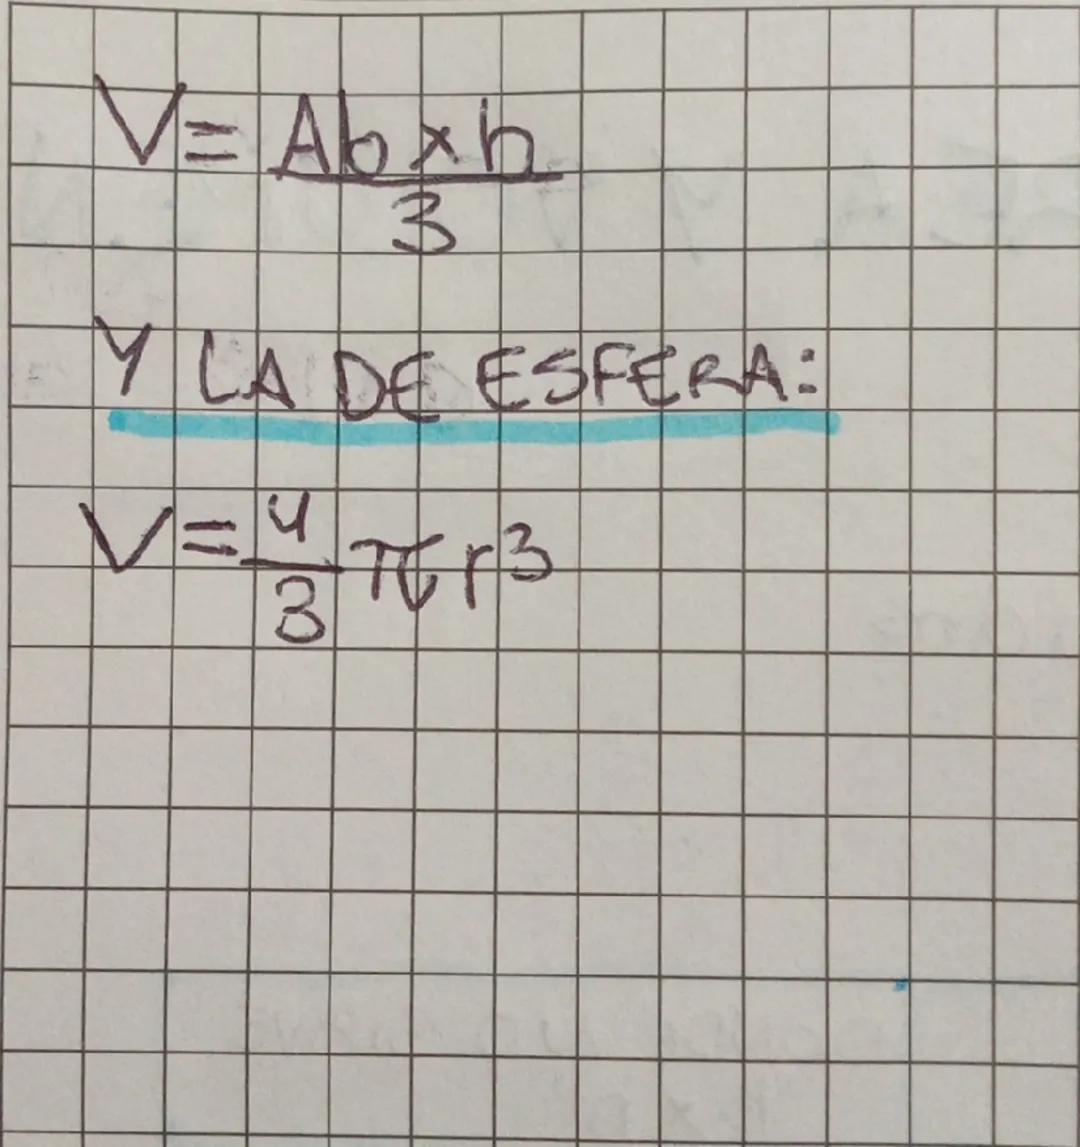 V= Ab x h
3
Y LA DE ESFERA:
V= 4/3 π r³